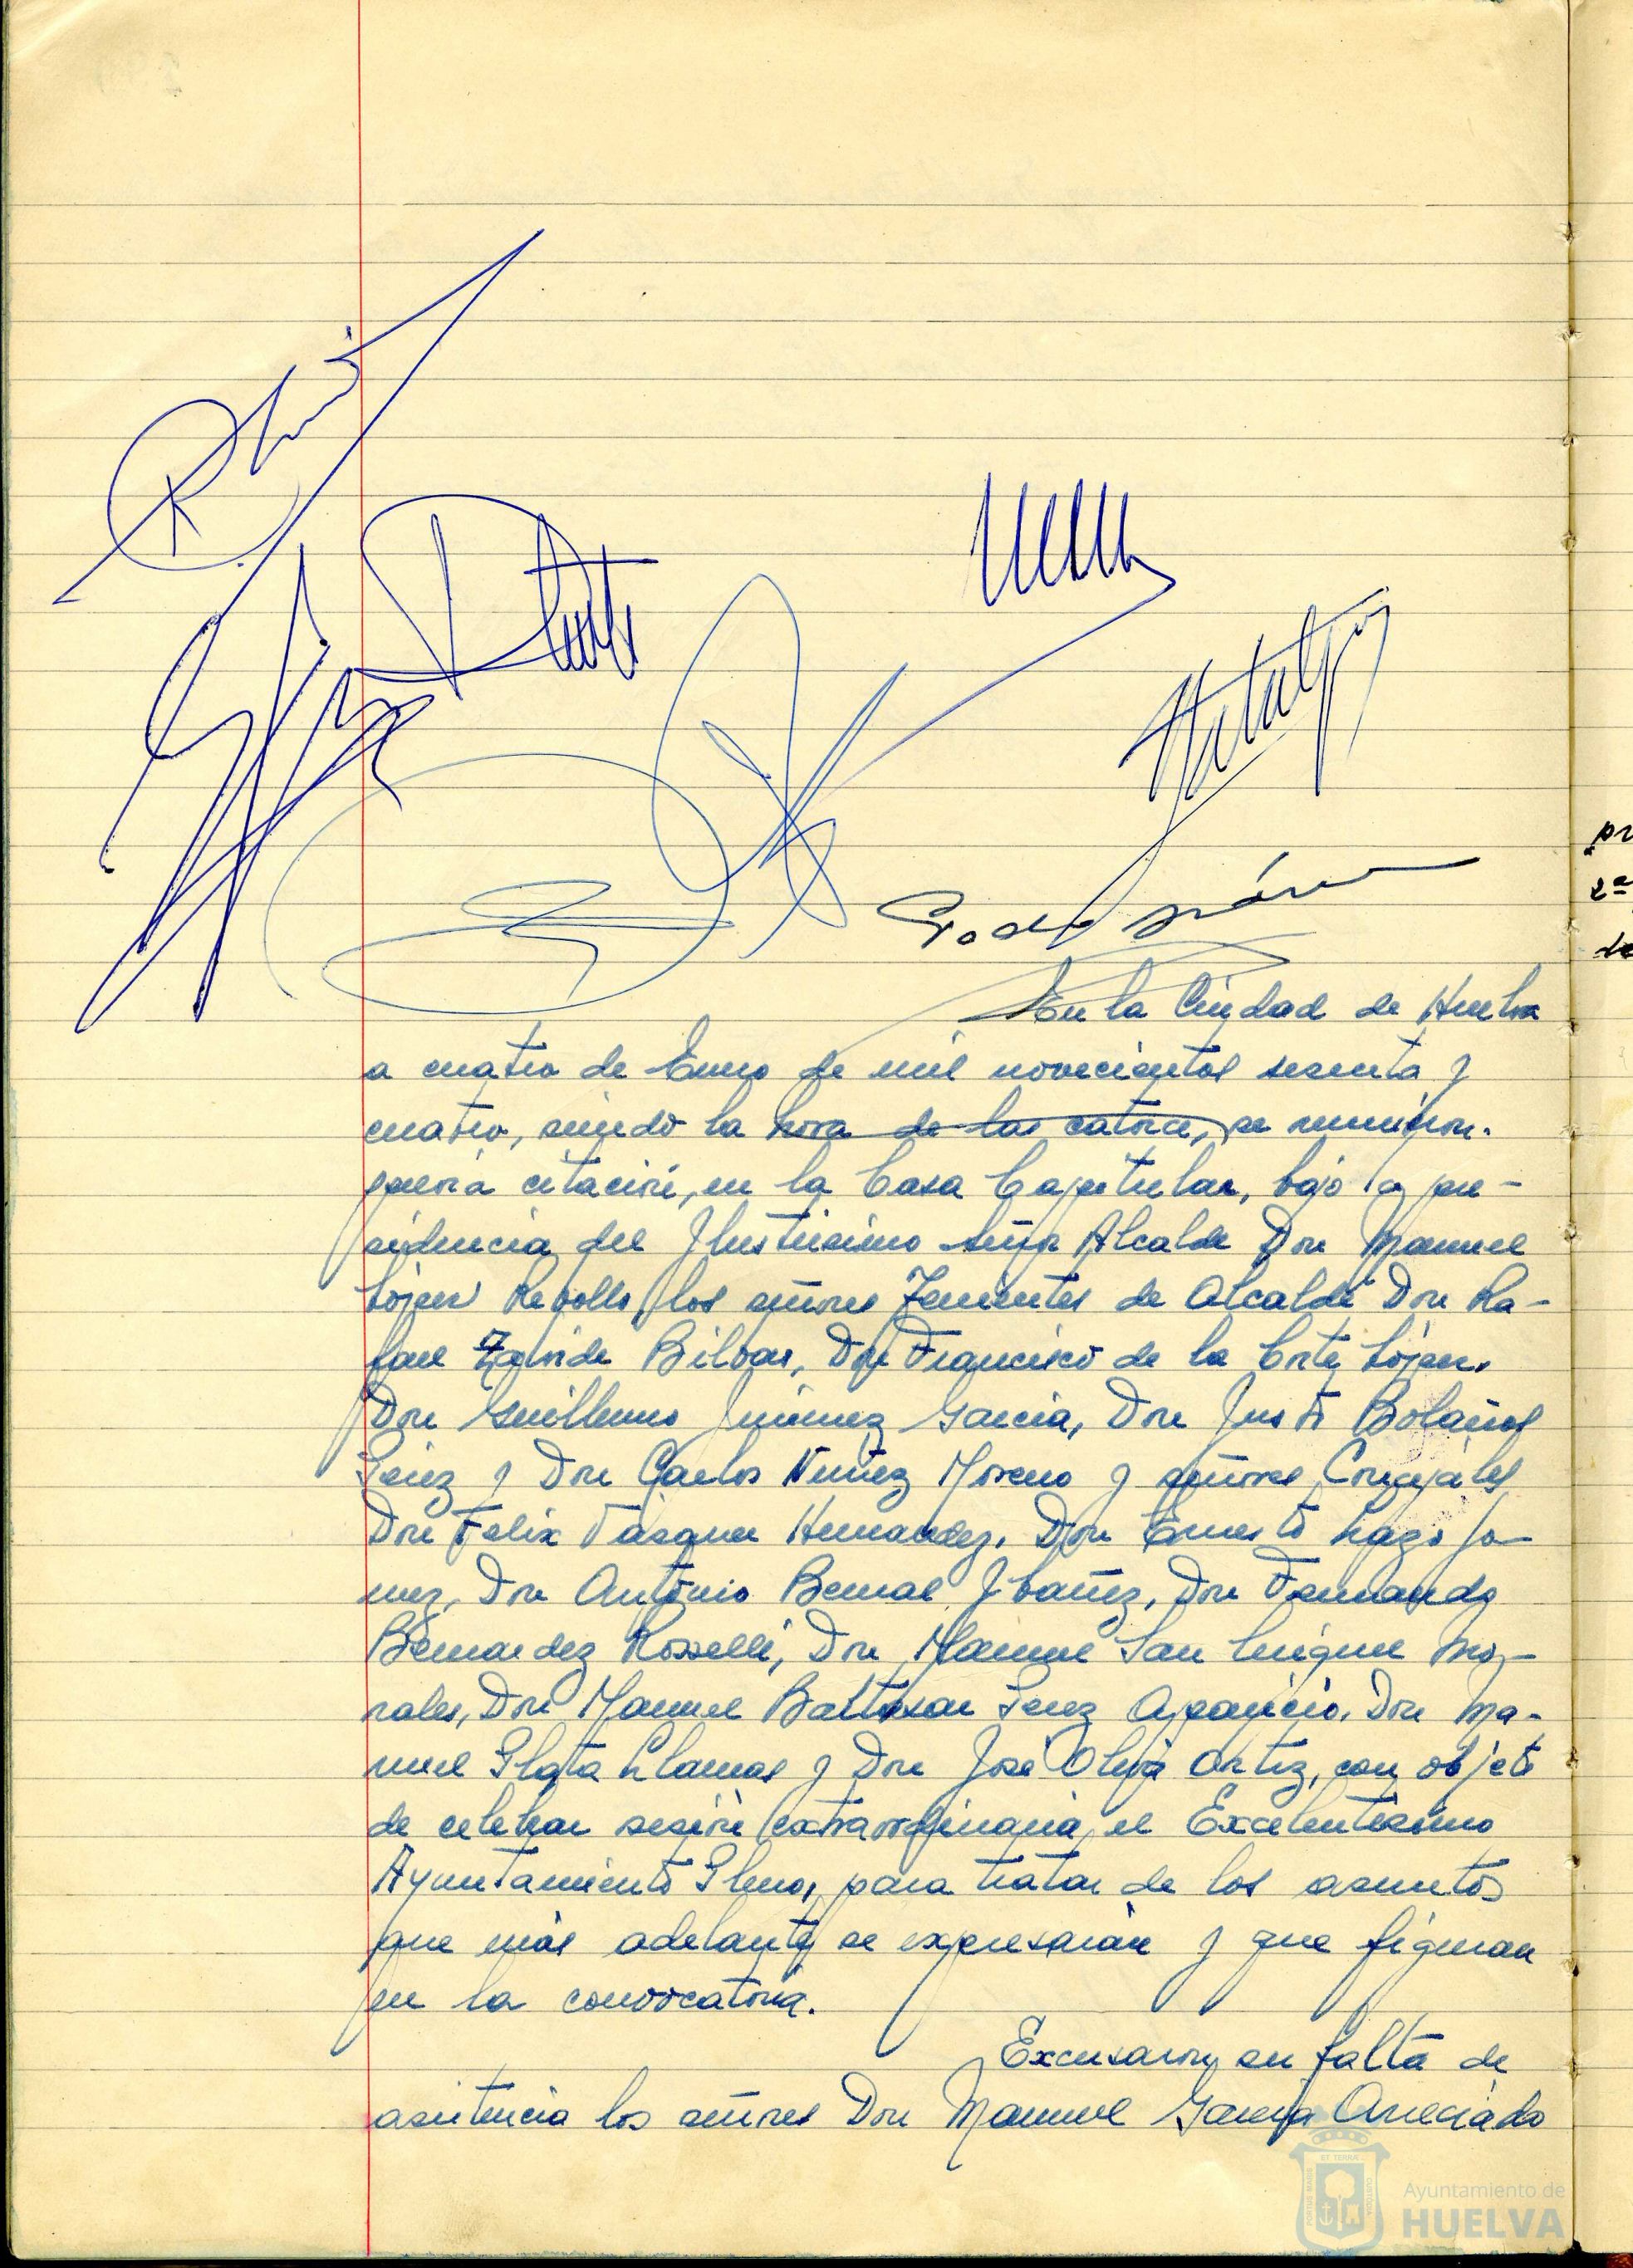 En la Ciudad de Huelva
a cuatro de Enero de mil novecientos sesenta y
cuatro, siendo la hora de las catorce, se reunieron
previa citación, en la Casa Capitular, bajo la pre-
sidencia del Ilustrisimo señor Alcalde Don Manuel
López Rebollo, los señores Tenientes de Alcalde Don Ra-
fael Bilbao, Don Francisco de la Corte López,
Don Guillermo Jimenez Garcia, Don Justo Bolaños
Perez y Don Carlos Nuñez Moreno y señores Concejales
Don Felix Vasquez Hernandez, Don Ernesto Lazo Jo
mez, Don Antonio Bernal Ibañez, Don Fernando
Bernardez Rosselli, Don Manuel San Miguel Mo-
rales, Don Manuel Baltasar Perez Aparicio, Don Ma-
nuel Plata Llamas y Don José Oliva Ortiz, con objeto
de celebrar sesión extraordinaria, el Excelentisimo
Ayuntamiento Pleno, para tratar de los asuntos
que más adelante se expresarán y que figuran
en la convocatoria.
Excusaron su falta de
asistencia los señores Don Manuel Garcia
pr
2ª
de
Ayuntamiento de
HUELVA